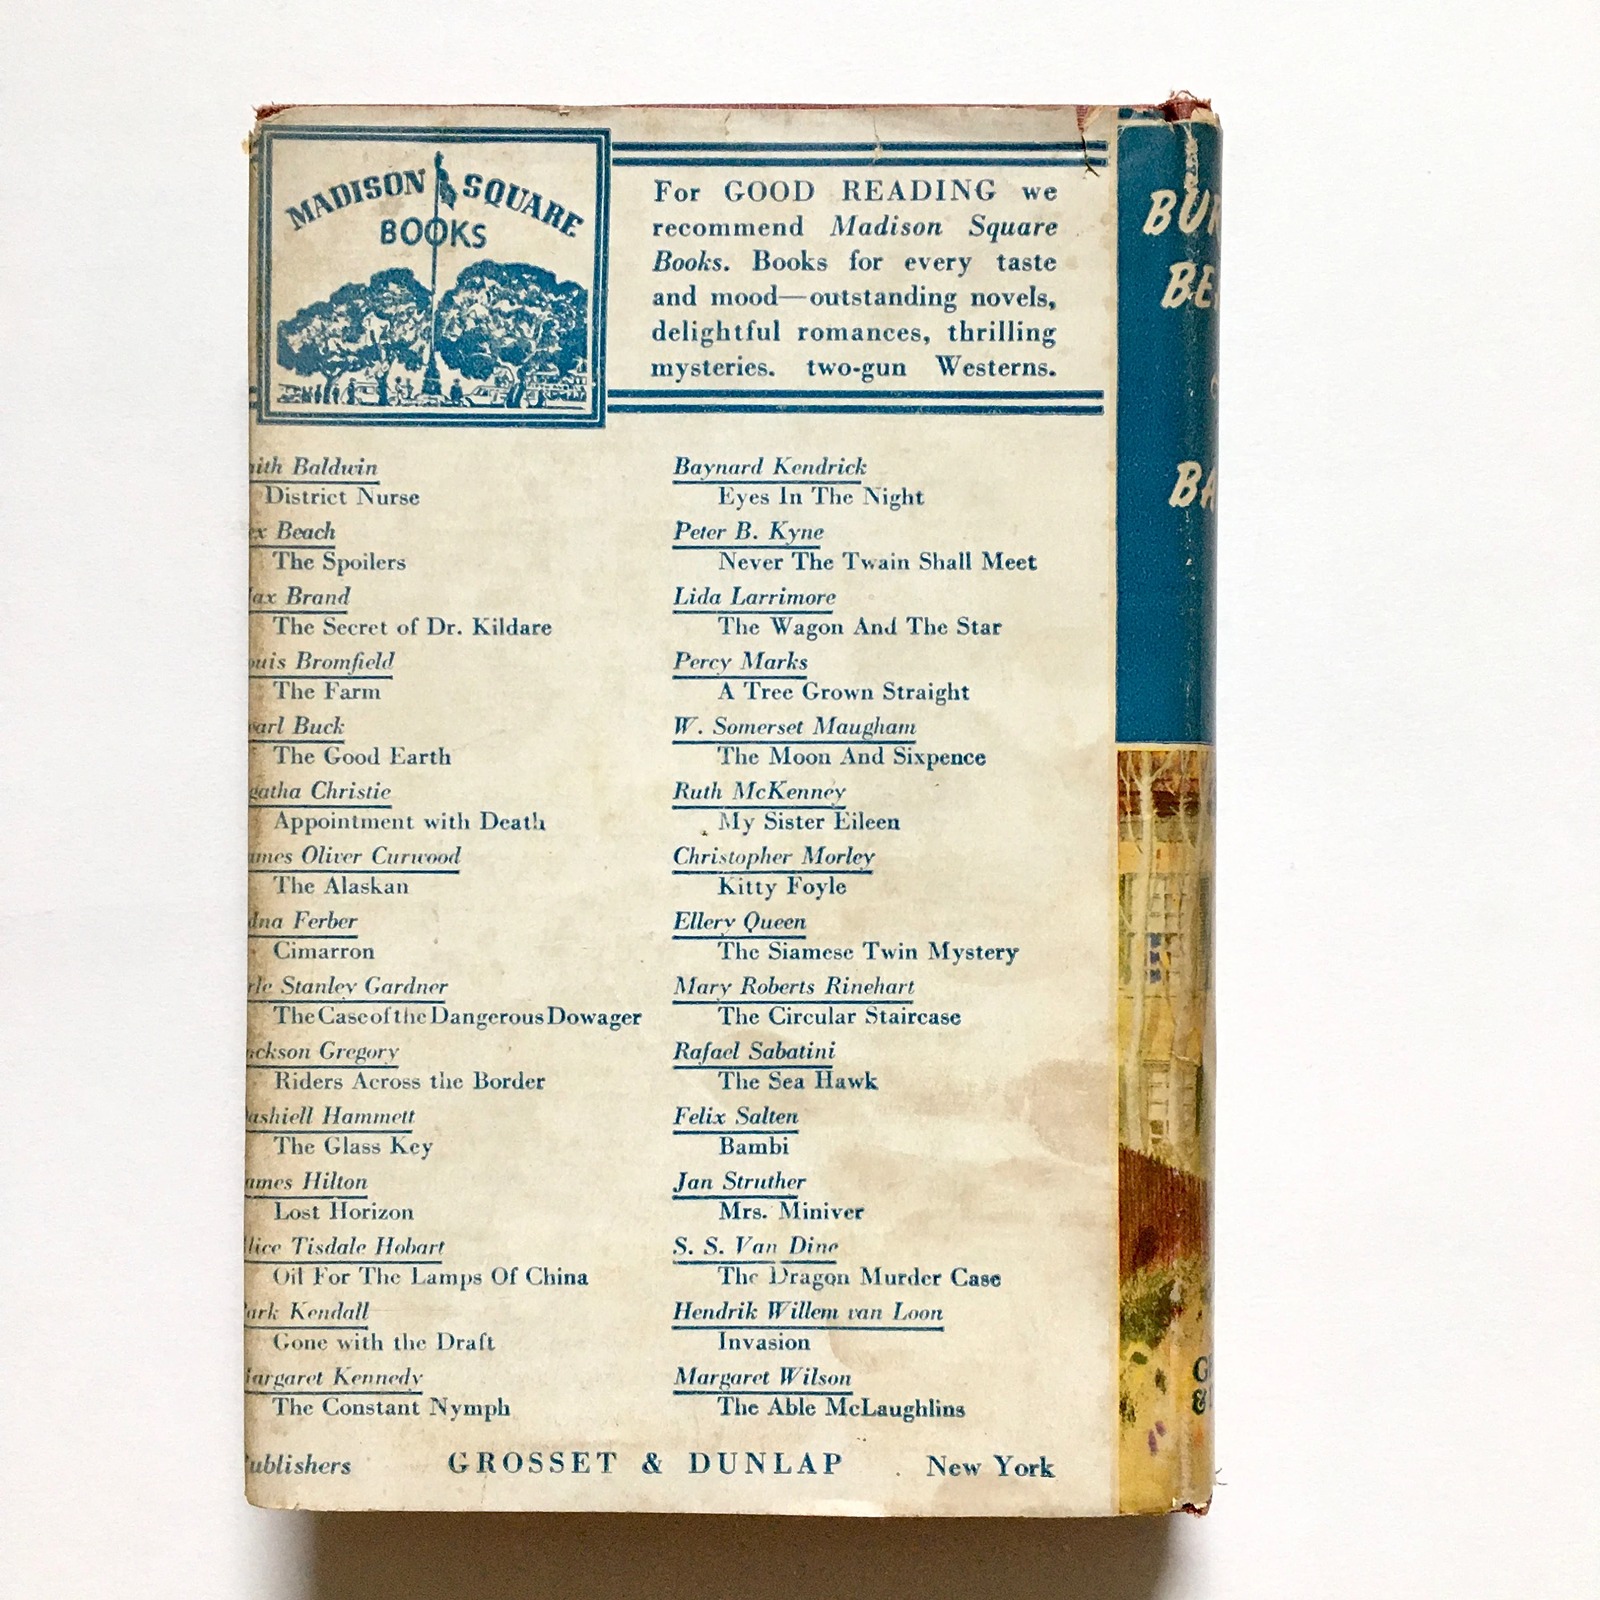 MADISON SQUARE
BOOKS
For GOOD READING we
recommend Madison Square
Books. Books for every taste
and mood—outstanding novels,
delightful romances, thrilling
mysteries. two-gun Westerns.
ith Baldwin
District Nurse
ex Beach
The Spoilers
ax Brand
The Secret of Dr. Kildare
ouis Bromfield
The Farm
earl Buck
The Good Earth
gatha Christie
Appointment with Death
ames Oliver Curwood
The Alaskan
dna Ferber
Cimarron
rle Stanley Gardner
The Case of the Dangerous Dowager
ackson Gregory
Riders Across the Border
ashiell Hammett
The Glass Key
ames Hilton
Lost Horizon
lice Tisdale Hobart
Oil For The Lamps Of China
ark Kendall
Gone with the Draft
argaret Kennedy
The Constant Nymph
Baynard Kendrick
Eyes In The Night
Peter B. Kyne
Never The Twain Shall Meet
Lida Larrimore
The Wagon And The Star
Percy Marks
A Tree Grown Straight
W. Somerset Maugham
The Moon And Sixpence
Ruth McKenney
My Sister Eileen
Christopher Morley
Kitty Foyle
Ellery Queen
The Siamese Twin Mystery
Mary Roberts Rinehart
The Circular Staircase
Rafael Sabatini
The Sea Hawk
Felix Salten
Bambi
Jan Struther
Mrs. Miniver
S. S. Van Dine
The Dragon Murder Case
Hendrik Willem van Loon
Invasion
Margaret Wilson
The Able McLaughlins
ublishers GROSSET & DUNLAP New York
BU
BE
BA
G
&